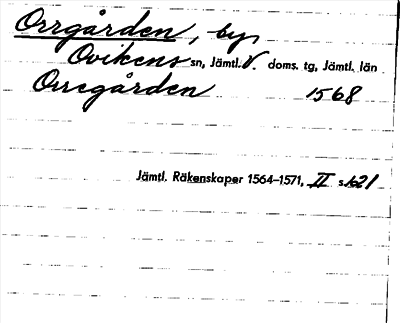 Orrgården, by,
Ovikens sn, Jämtl. V. doms. tg, Jämtl. län
Orregården 1568
Jämtl. Räkenskaper 1564–1571, II s. 621